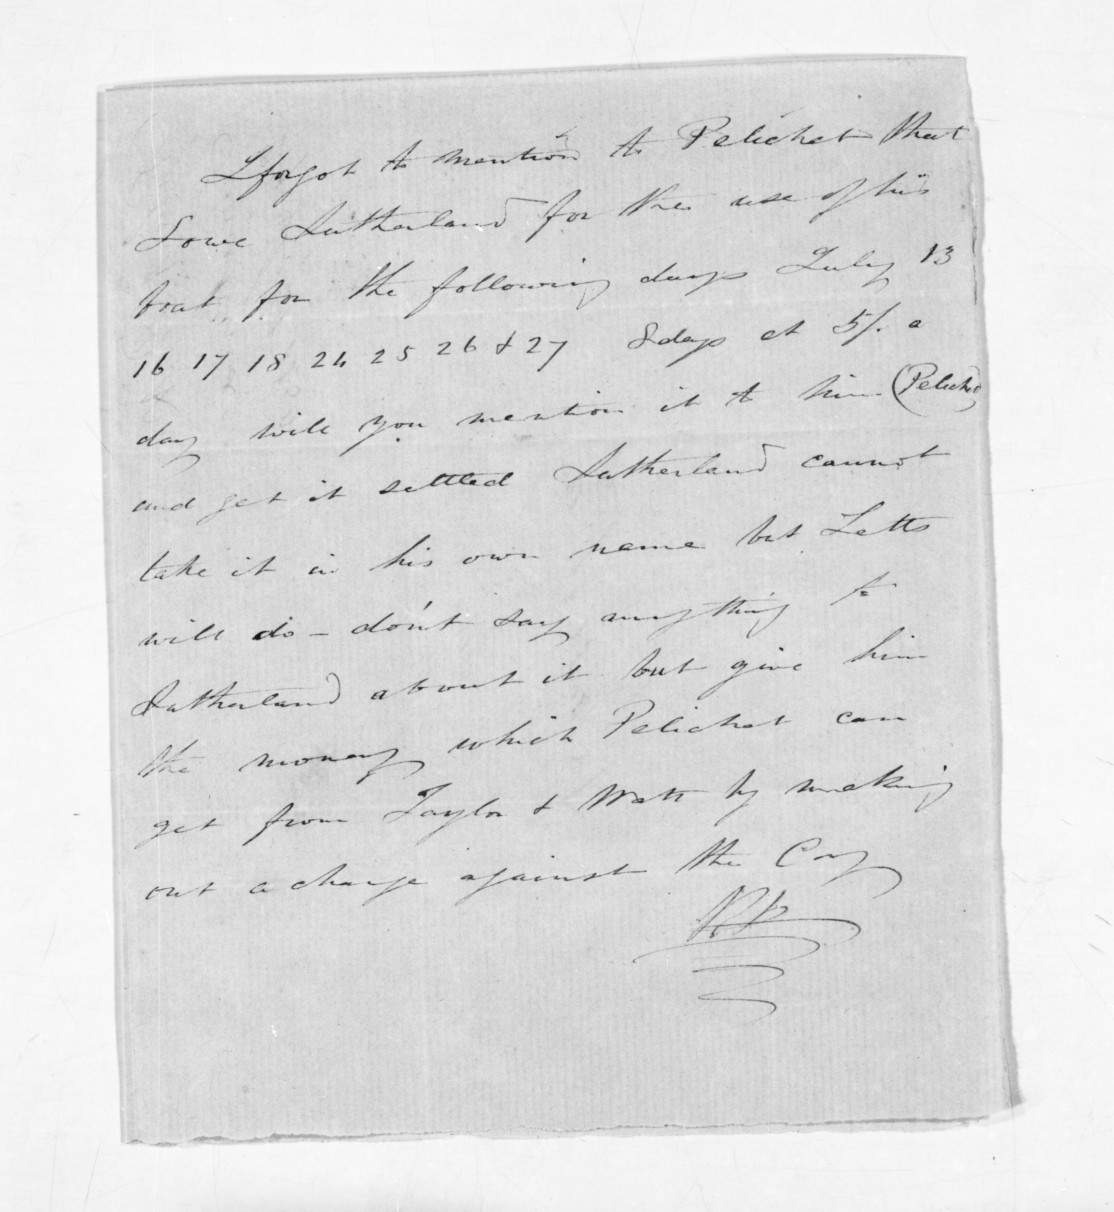 I forgot to mention to Pelichet that
I owe Sutherland for the use of his
boat for the following days July 13
16 17 18 24 25 26 & 27 8 days at 5/. a
day will you mention it to him (Pelichet)
and get it settled Sutherland cannot
take it in his own name but Letts
will do - don't say anything to
Sutherland about it but give him
the money which Pelichet can
get from Taylor & Watt by making
out a charge against the Coy